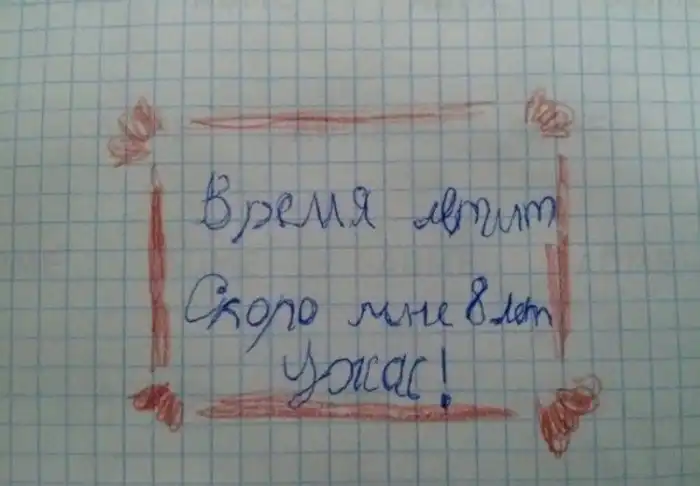 Время летит
Скоро мне 8 лет
Ужас!